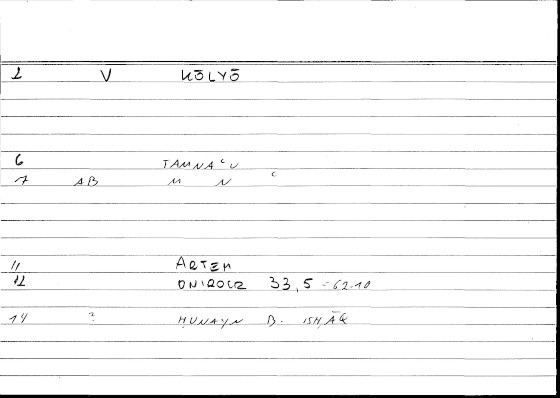 1 V KŌLYŌ
6 TAMNAʿU
7 AB M N ʿ
11 ARTEM
12 ONIROCR 33,5 = 62.10
14 ? ḤUNAYN B. ISḤĀQ